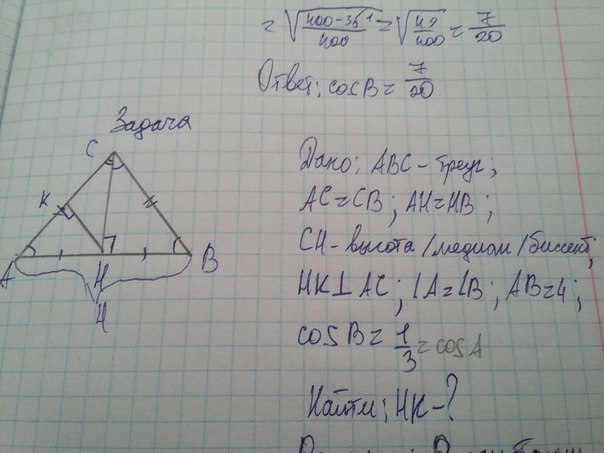 = √(400-361/400) = √(49/400) = 7/20
Ответ: cosB = 7/20
Задача
C
K
A
H
B
4
Дано: ABC - треуг;
AC = CB; AH = HB;
CH - высота/медиан/биссект;
HK ⊥ AC; ∠A = ∠B; AB = 4;
cosB = 1/3 = cosA
Найти: HK - ?